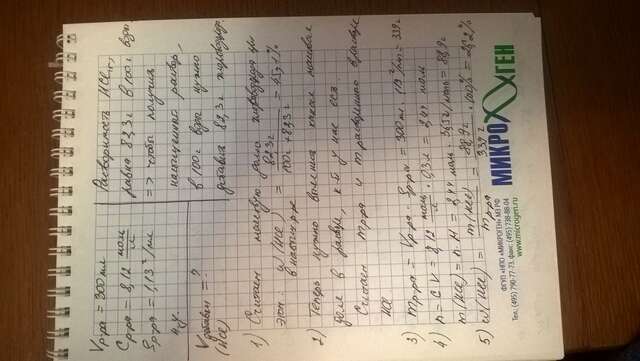 Vр-ра = 300 мл
Cр-ра = 8,12 моль/л
ρр-ра = 1,13 г/мл
н.у.
Vдобавл = ?
(HCl)
Растворимость HCl(г)
равна 82,3 г в 100 г воды
=> чтобы получить
насыщенный раствор,
в 100 г воды нужно
добавить 82,3 г хлороводор.
1) Считаем массовую долю хлороводорода при
этом ω(HCl) = 82,3 г / 100 г + 82,3 г = 45,1%
в насыщ р-ре
2) Теперь нужно вычислить такая массовая
доля в растворе, к-й у нас есть.
Считаем mр-ра и m растворенного вещества
HCl
3) mр-ра = Vр-ра · ρр-ра = 300 мл · 1,13 г/мл = 339 г
4) n = C · V = 8,12 моль/л · 0,3 л = 2,44 моль
m(HCl) = n · M = 2,44 моль · 36,5 г/моль = 88,9 г
5) ω(HCl) = m(HCl) / mр-ра = 88,9 г / 339 г · 100% = 26,2%
МИКРОГЕН
ФГУП «НПО «МИКРОГЕН» МЗ РФ
Тел. (495) 790-77-73, факс: (495) 738-88-04
www.microgen.ru